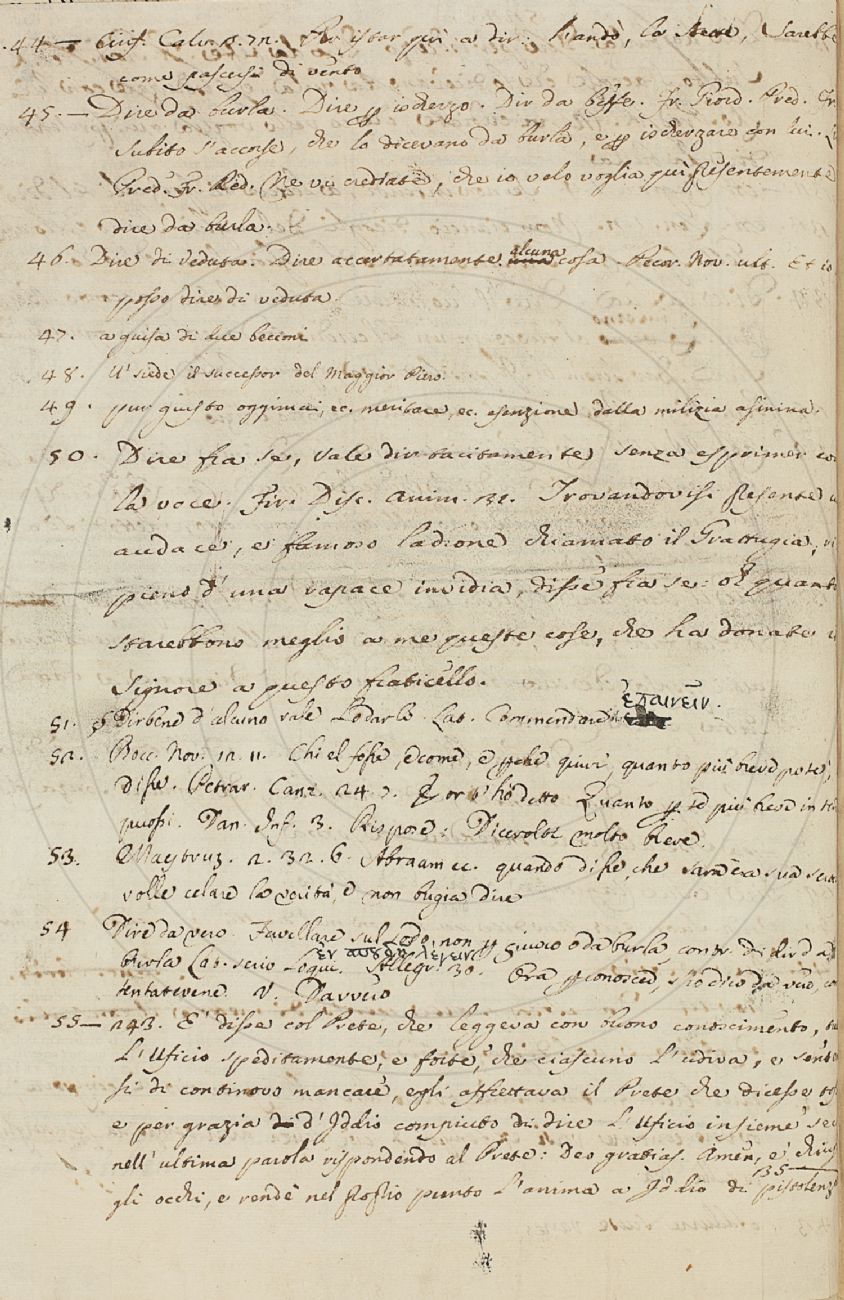 44 — Buf. Calv. 2. 72. Per istar qui a dir: Mando, lo Sarebb
come pascersi di vento
45. — Dire da burla. Dire p ischerzo. Dir da beffe. Fr. Giord. Pred. Fr.
subito s'accorse, che lo dicevano da burla, e p ischerzare con lui.
Pred. Fr. Red. Ne vi crediate, che io velo voglia qui presentemente
dire da burla.
46. Dire di veduta. Dire accertatamente alcuna cosa Pecor. Nov. ult. Et io
posso dire di veduta.
47. a guisa di due becconi
48. U' siede il successor del Maggior Piero.
49. pur giusto oggimai, ec. meritare, ec. esenzione dalla milizia asinina.
50. Dire fra se, vale dir tacitamente senza esprimer co
la voce. Fir. Disc. anim. 31. Trovandovisi presente u
audace, e famoso ladrone chiamato il Grattugia, ri
pieno d'una rapace invidia, disse fra se: oh quanto
starebbono meglio a me queste cose, che ha donate i
Signore a questo fraticello.
51. Dir bene d'alcuno vale Lodarlo. Lat. Commendare ἐπαινεῖν.
52. Bocc. Nov. 12. 11. Chi el fosse, e come, e pchè quivi, quanto più breve potè,
disse. Petrar. Canz. 24. 7. Or t'ho detto Quanto p te più breve in te
puossi. Dan. Inf. 3. Rispose: Dicerolti molto breve.
53. Maestruz. 2. 32. 6. Abraam ec. quando disse, che Sarra era sua
volle celare la verità, e non bugia dire
54 Dire da vero. Favellare sul sodo, non p giuoco o da burla, contr. di dir da
burla Lat. serio loqui. λέγειν Allegr. 30. Ora pconoscer, s'io dico da vero, co
tentatevene. V. Davvero
55 — 243. E' disse col Prete, che leggeva con buono conoscimento, tu
L'Uficio speditamente, e forte, che ciascuno l'udiva, e senten
si di continovo mancare, egli affrettava il Prete che dicesse tos
e per grazia d'Iddio compiuto di dire l'Uficio insieme se
nell'ultima parola rispondendo al Prete: Deo gratias. Amen, e chius
gli occhi, e rendè nel proprio punto l'anima a Iddio di pistolenz